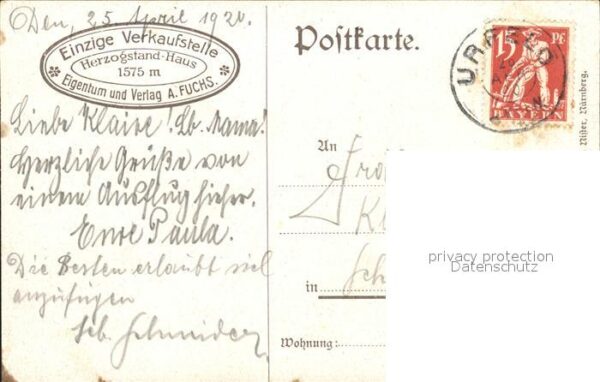 Den, 25. April 1920.
Einzige Verkaufstelle
Herzogstand-Haus
1575 m
Eigentum und Verlag A. FUCHS.
Liebe Klaire! Lb. Mama!
Herzliche Grüße von
einem Ausflug hieher.
Eure Paula.
Die Besten erlaubt sich
anzufügen
Seb. Schneider
Postkarte.
15 Pf
URFELD
BAYERN
An
in
Wohnung:
Nister, Nürnberg.
privacy protection
Datenschutz